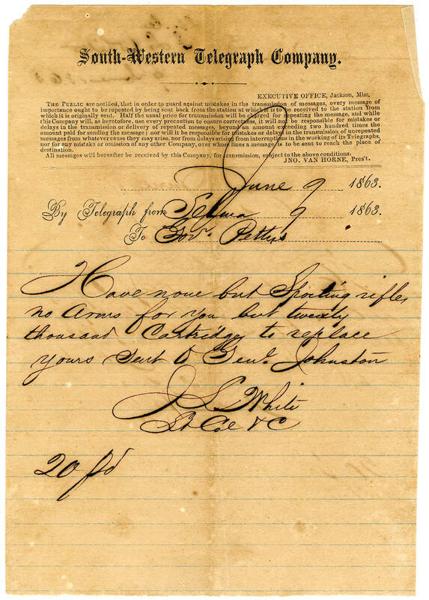 South-Western Telegraph Company.
EXECUTIVE OFFICE, Jackson, Miss.
THE PUBLIC are notified, that in order to guard against mistakes in the transmission of messages, every message of
importance ought to be repeated by being sent back from the station at which it is to be received to the station from
which it is originally sent. Half the usual price for transmission will be charged for repeating the message, and while
this Company will, as heretofore, use every precaution to ensure correctness, it will not be responsible for mistakes or
delays in the transmission or delivery of repeated messages, beyond an amount exceeding two hundred times the
amount paid for sending the message; nor will it be responsible for mistakes or delays in the transmission of unrepeated
messages from whatever cause they may arise, nor from delays arising from interruptions in the working of its Telegraphs,
nor for any mistake or omission of any other Company, over whose lines a message is to be sent to reach the place of
destination.
All messages will hereafter be received by this Company, for transmission, subject to the above conditions.
JNO. VAN HORNE, Pres't.
June 9 1863.
By Telegraph from Selma 9 1863.
To Gov. Pettus
Have none but Sporting rifles
no Arms for you but twenty
thousand Cartridges to replace
yours Sent to Genl. Johnston
J L White
Lt Col &C
20 pd